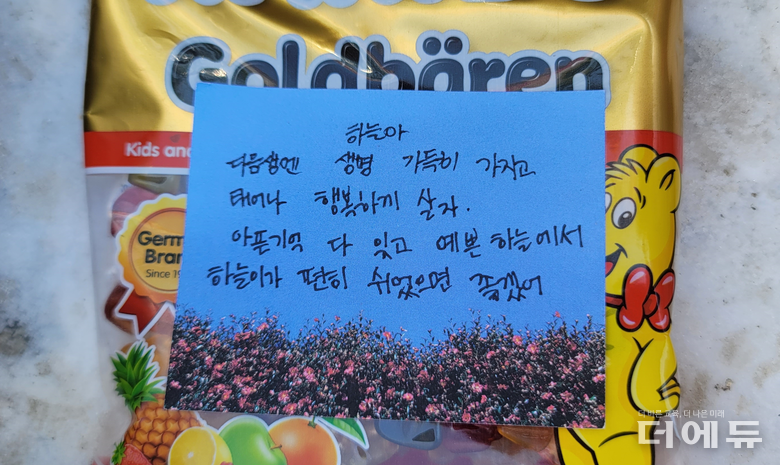 Goldbären
Kids and
하늘아
다음생엔 생명 가득히 가지고
태어나 행복하게 살자.
아픈기억 다 잊고 예쁜 하늘에서
하늘이가 편히 쉬었으면 좋겠어
Germ
Bran
Since 19
더 바른 교육, 더 나은 미래
더에듀